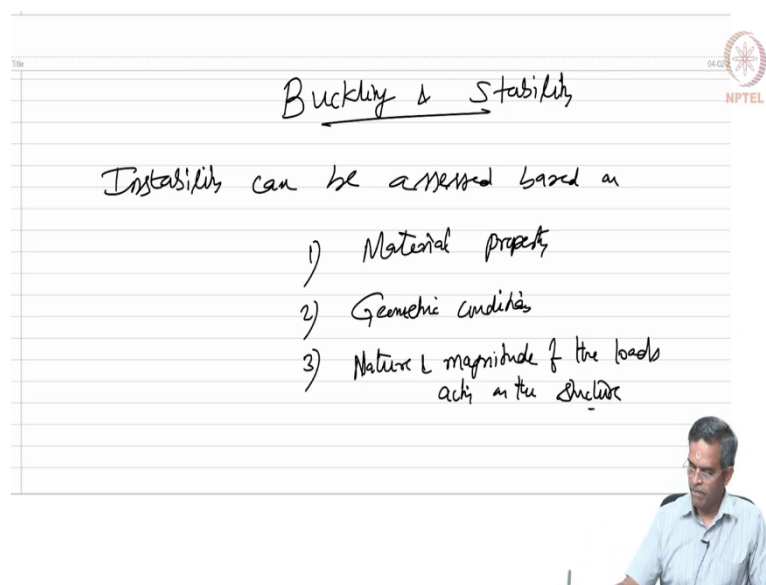 Title
04-02-2
NPTEL
Buckling & Stability
Instability can be assessed based on
1) Material property
2) Geometric conditions
3) Nature & magnitude of the loads
acting on the structure